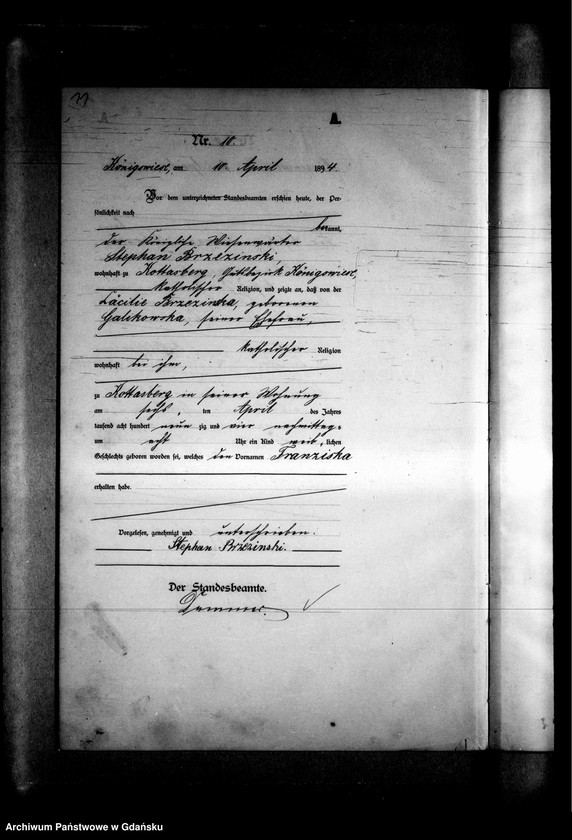 11
A.
Nr. 10.
Königswiese, am 10. April 1894.
Vor dem unterzeichneten Standesbeamten erschien heute, der Per-
sönlichkeit nach
bekannt,
der Königliche Wiesenwärter
Stephan Brzezinski,
wohnhaft zu Kottasberg, Gutsbezirk Königswiese,
katholischer Religion, und zeigte an, daß von der
Cäcilie Brzezinska, geborenen
seiner Ehefrau,
katholischer Religion
wohnhaft bei ihm,
zu Kottasberg in seiner Wohnung
am sechs, ten April des Jahres
tausend acht hundert neun zig und vier nachmittags
um acht Uhr ein Kind weib, lichen
Geschlechts geboren worden sei, welches den Vornamen Franziska
erhalten habe.
Vorgelesen, genehmigt und unterschrieben.
Stephan Brzezinski.
Der Standesbeamte.
Archiwum Państwowe w Gdańsku